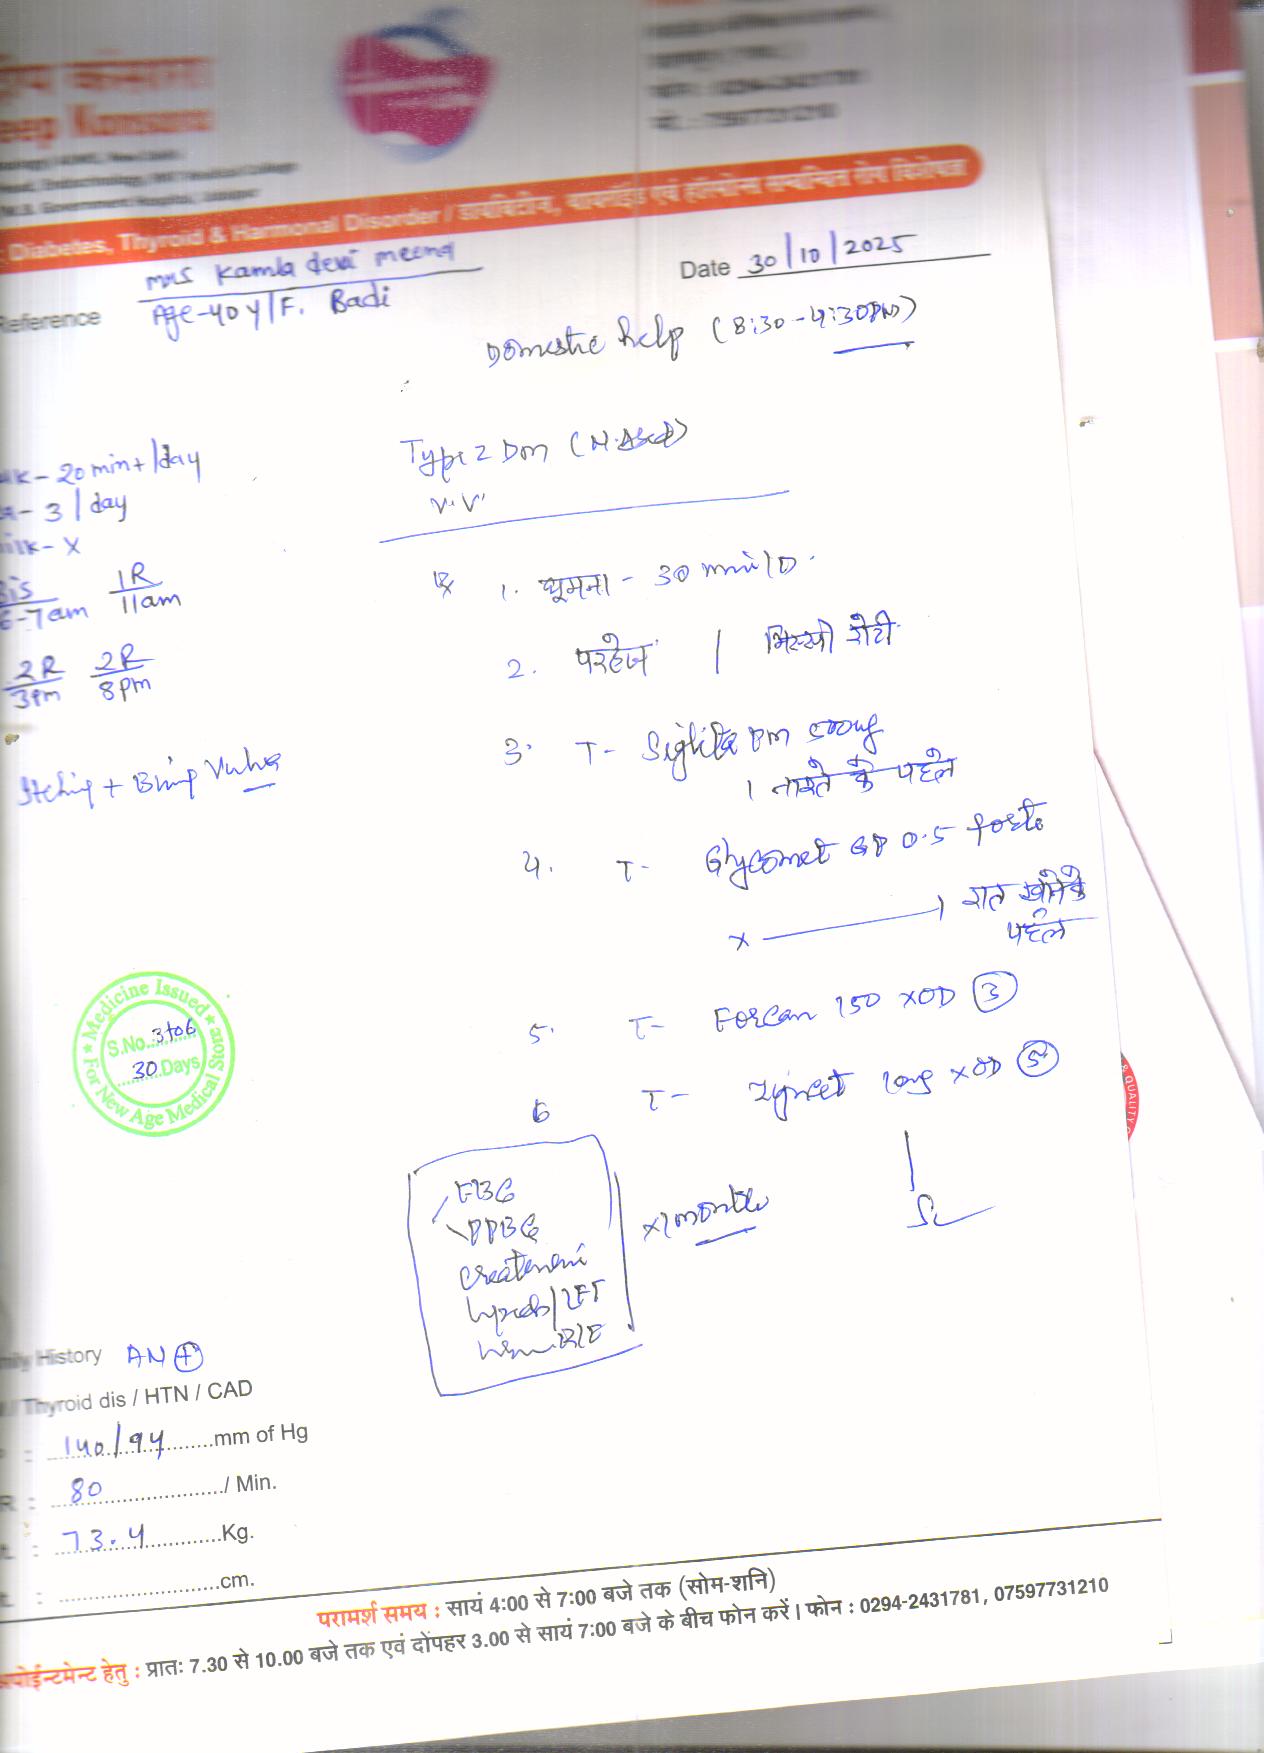 Diabetes, Thyroid & Harmonal Disorder / डायबिटीज, थायरॉइड एवं हॉरमोन्स सम्बन्धित रोग विशेषज्ञ
Mrs Kamla devi meena
Date 30/10/2025
Reference Age-40 Y/F. Badi
Domestic help (8:30-4:30PM)
- 20 min+/day
- 3/day
milk- X
Bis 1R
6-7am 11am
2R 2R
3pm 8pm
Type 2 Dm
V.V
Rx 1. घूमना - 30 min/D.
2. परहेज | मिस्सी रोटी
3. T- Siglita PM 500mg
1 नाश्ते के पहले
Itching + Vulva
4. T- Glycomet GP 0.5 forte
x 1 रात खाने के
पहले
5. T- Forcan 150 XOD 3
6 T- Zyncet XOD 5
★ Medicine Issued ★
S.No. 3to6
30 Days
For New Age Medical Store
& QUALITY
FBG
PPBG
Creatinine
Lipids/LFT
x 1 month
Family History AN +
/ Thyroid dis / HTN / CAD
: 140/94 mm of Hg
: 80 / Min.
: 73.4 Kg.
: cm.
परामर्श समय : सायं 4:00 से 7:00 बजे तक (सोम-शनि)
अपोईन्टमेन्ट हेतु : प्रातः 7.30 से 10.00 बजे तक एवं दोंपहर 3.00 से सायं 7:00 बजे के बीच फोन करें। फोन : 0294-2431781, 07597731210